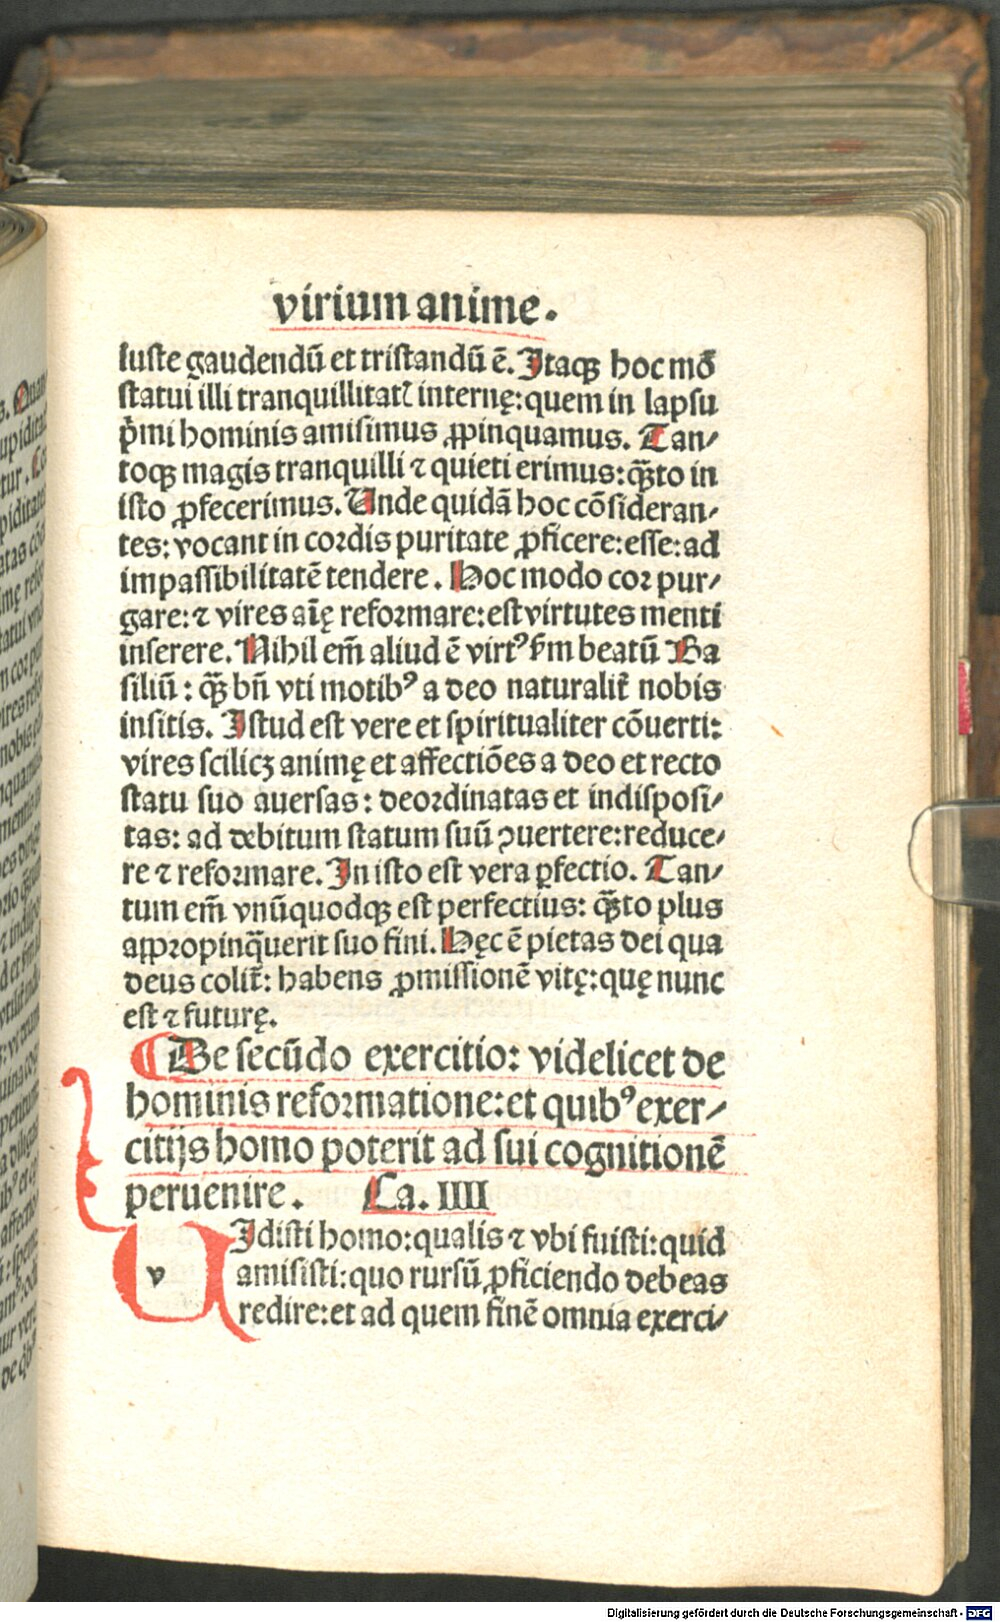 virium anime.
iuste gaudendū et tristandū ē. Itaqꝫ hoc mō
statui illi tranquillitatꝭ internę: quem in lapsu
pͥmi hominis amisimus ꝓpinquamus. Tan⸗
toqꝫ magis tranquilli ⁊ quieti erimus: qͣ̄to in
isto ꝓfecerimus. Unde quidā hoc cōsideran⸗
tes: vocant in cordis puritate ꝓficere: esse: ad
impassibilitatē tendere. Hoc modo cor pur⸗
gare: ⁊ vires aīę reformare: est virtutes menti
inserere. Nihil em̄ aliud ē virtꝰ ẜm beatū Ba
siliū: qͣꝫ bn̄ vti motibꝰ a deo naturalit̄ nobis
insitis. Istud est vere et spiritualiter cōuerti:
vires scilicꝫ animę et affectiōes a deo et recto
statu suo auersas: deordinatas et indisposi⸗
tas: ad debitum statum suū ꝯuertere: reduce⸗
re ⁊ reformare. In isto est vera ꝑfectio. Tan⸗
tum em̄ vnūquodqꝫ est perfectius: qͣ̄to plus
appropinqͣuerit suo fini. Hęc ē pietas dei qua
deus colit̄: habens ꝓmissionē vitę: quę nunc
est ⁊ futurę.
¶ De secūdo exercitio: videlicet de
hominis reformatione: et quibꝰ exer⸗
citijs homo poterit ad sui cognitionē
peruenire. Ca. IIII
VIdisti homo: qualis ⁊ vbi fuisti: quid
amisisti: quo rursū ꝓficiendo debeas
redire: et ad quem finē omnia exerci⸗
Digitalisierung gefördert durch die Deutsche Forschungsgemeinschaft - DFG